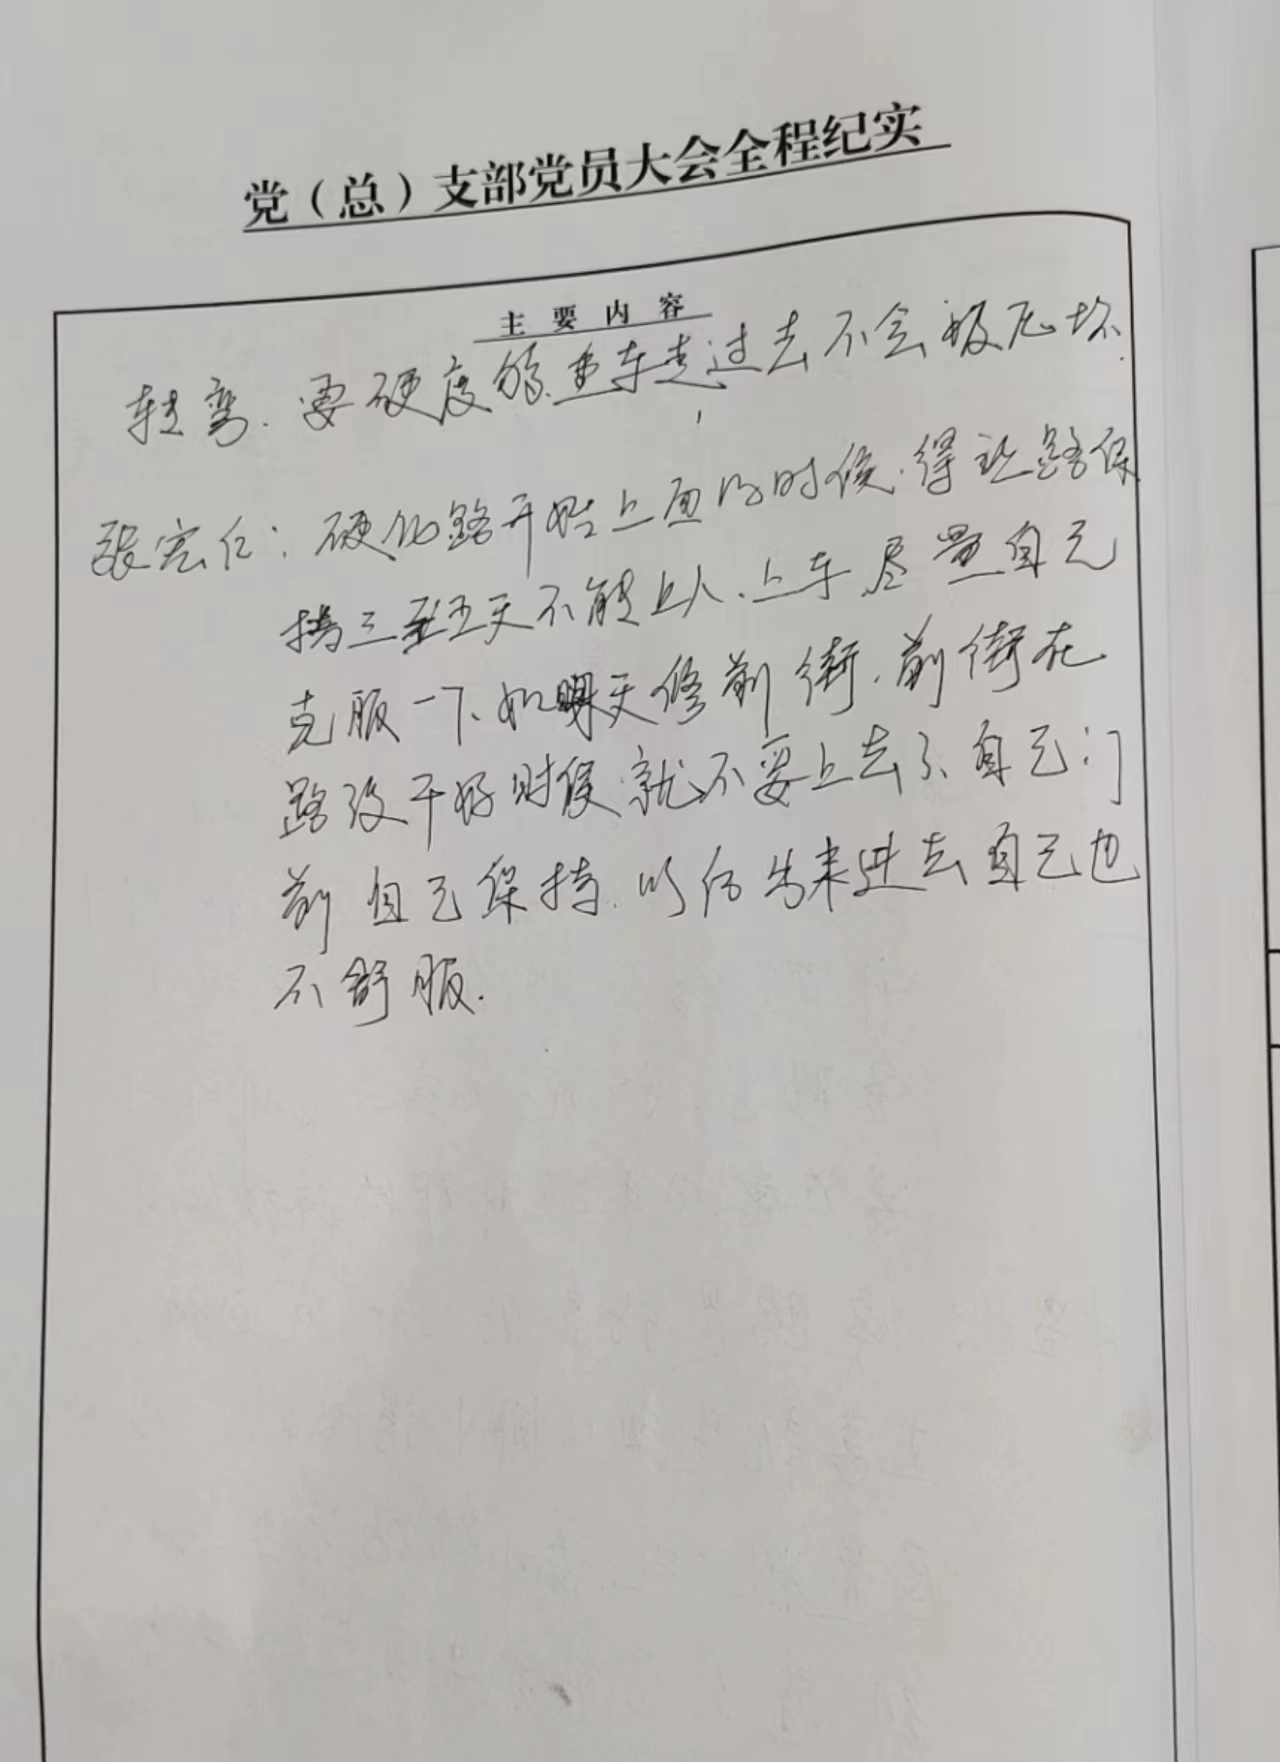 党（总）支部党员大会全程纪实
主要内容
转弯.要硬度够.重车走过去不会被压坏.
张宏仁:硬化路开始上面的时候.得让路保
持三至五天不能上人.上车.尽量自己
克服一下、如明天修前街.前街在
路没干好时候就不要上去了、自己门
前自己保持.以后出来进去自己也
不舒服.